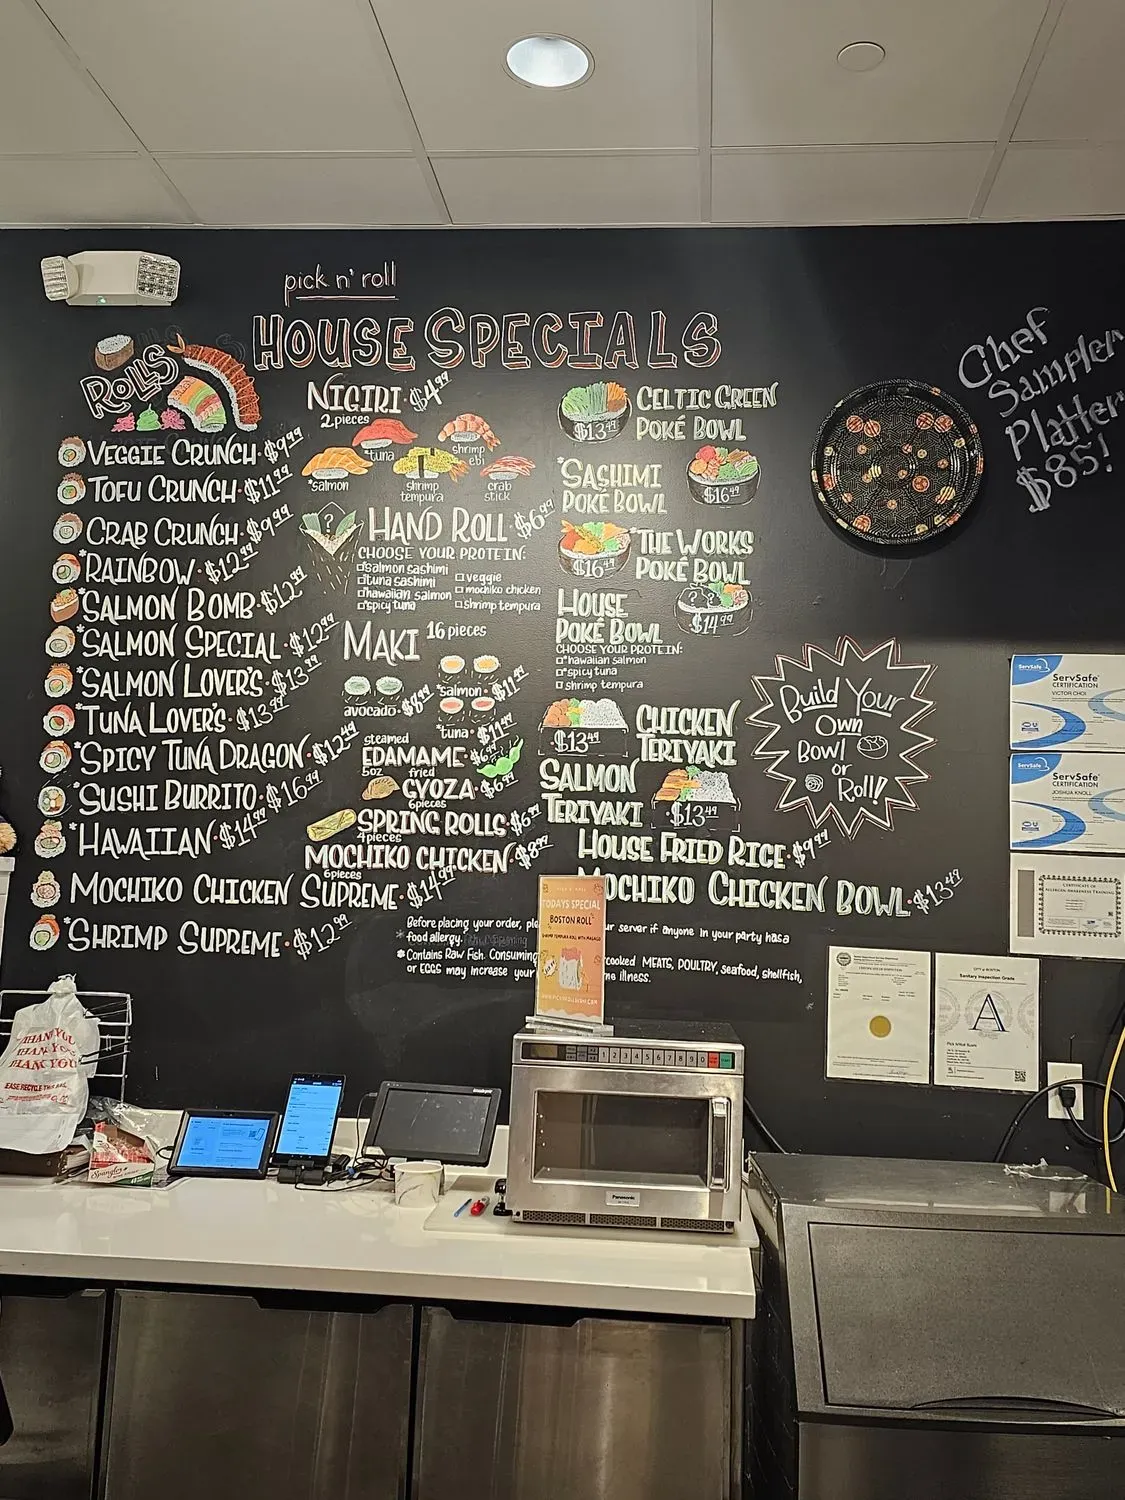 pick n' roll
HOUSE SPECIALS
ROLLS
VEGGIE CRUNCH · $9.99
TOFU CRUNCH · $11.99
CRAB CRUNCH · $9.99
*RAINBOW · $12.99
*SALMON BOMB · $12.99
*SALMON SPECIAL · $12.99
*SALMON LOVER'S · $13.99
*TUNA LOVER'S · $13.99
*SPICY TUNA DRAGON · $12.49
*SUSHI BURRITO · $16.99
*HAWAIIAN · $14.99
MOCHIKO CHICKEN SUPREME · $14.99
*SHRIMP SUPREME · $12.99
NIGIRI · $4.99
2 pieces
*tuna
shrimp
ebi
*salmon
shrimp
tempura
crab
stick
?
HAND ROLL · $6.99
CHOOSE YOUR PROTEIN:
*salmon sashimi
*tuna sashimi
*hawaiian salmon
*spicy tuna
veggie
mochiko chicken
shrimp tempura
MAKI 16 pieces
avocado · $8.99
*salmon · $11.99
*tuna · $11.99
steamed
EDAMAME · $6.99
5oz
fried
GYOZA · $6.99
6 pieces
SPRING ROLLS · $6.99
4 pieces
MOCHIKO CHICKEN · $8.99
6 pieces
CELTIC GREEN
POKÉ BOWL
$13.49
*SASHIMI
POKÉ BOWL
$16.49
*THE WORKS
POKÉ BOWL
$16.49
HOUSE
POKÉ BOWL
$14.99
CHOOSE YOUR PROTEIN:
*hawaiian salmon
*spicy tuna
shrimp tempura
CHICKEN
TERIYAKI
$13.49
SALMON
TERIYAKI
$13.49
HOUSE FRIED RICE · $9.99
MOCHIKO CHICKEN BOWL · $13.49
Build Your
Own
Bowl
or
Roll!
Chef
Sampler
Platter
$85!
Before placing your order, ple ur server if anyone in your party has a
food allergy.
*Contains Raw Fish. Consuming cooked MEATS, POULTRY, seafood, shellfish,
or EGGS may increase your ne illness.
TODAYS SPECIAL
BOSTON ROLL
SHRIMP TEMPURA ROLL WITH MASAGO
ServSafe
ServSafe
CERTIFICATION
VICTOR CHOI
ServSafe
ServSafe
CERTIFICATION
JOSHUA KNOLL
CERTIFICATE OF
ALLERGEN AWARENESS TRAINING
CITY of BOSTON
Sanitary Inspection Grade
A
THANK YOU
THANK YOU
THANK YOU
1 2 3 4 5 6 7 8 9 0
Panasonic